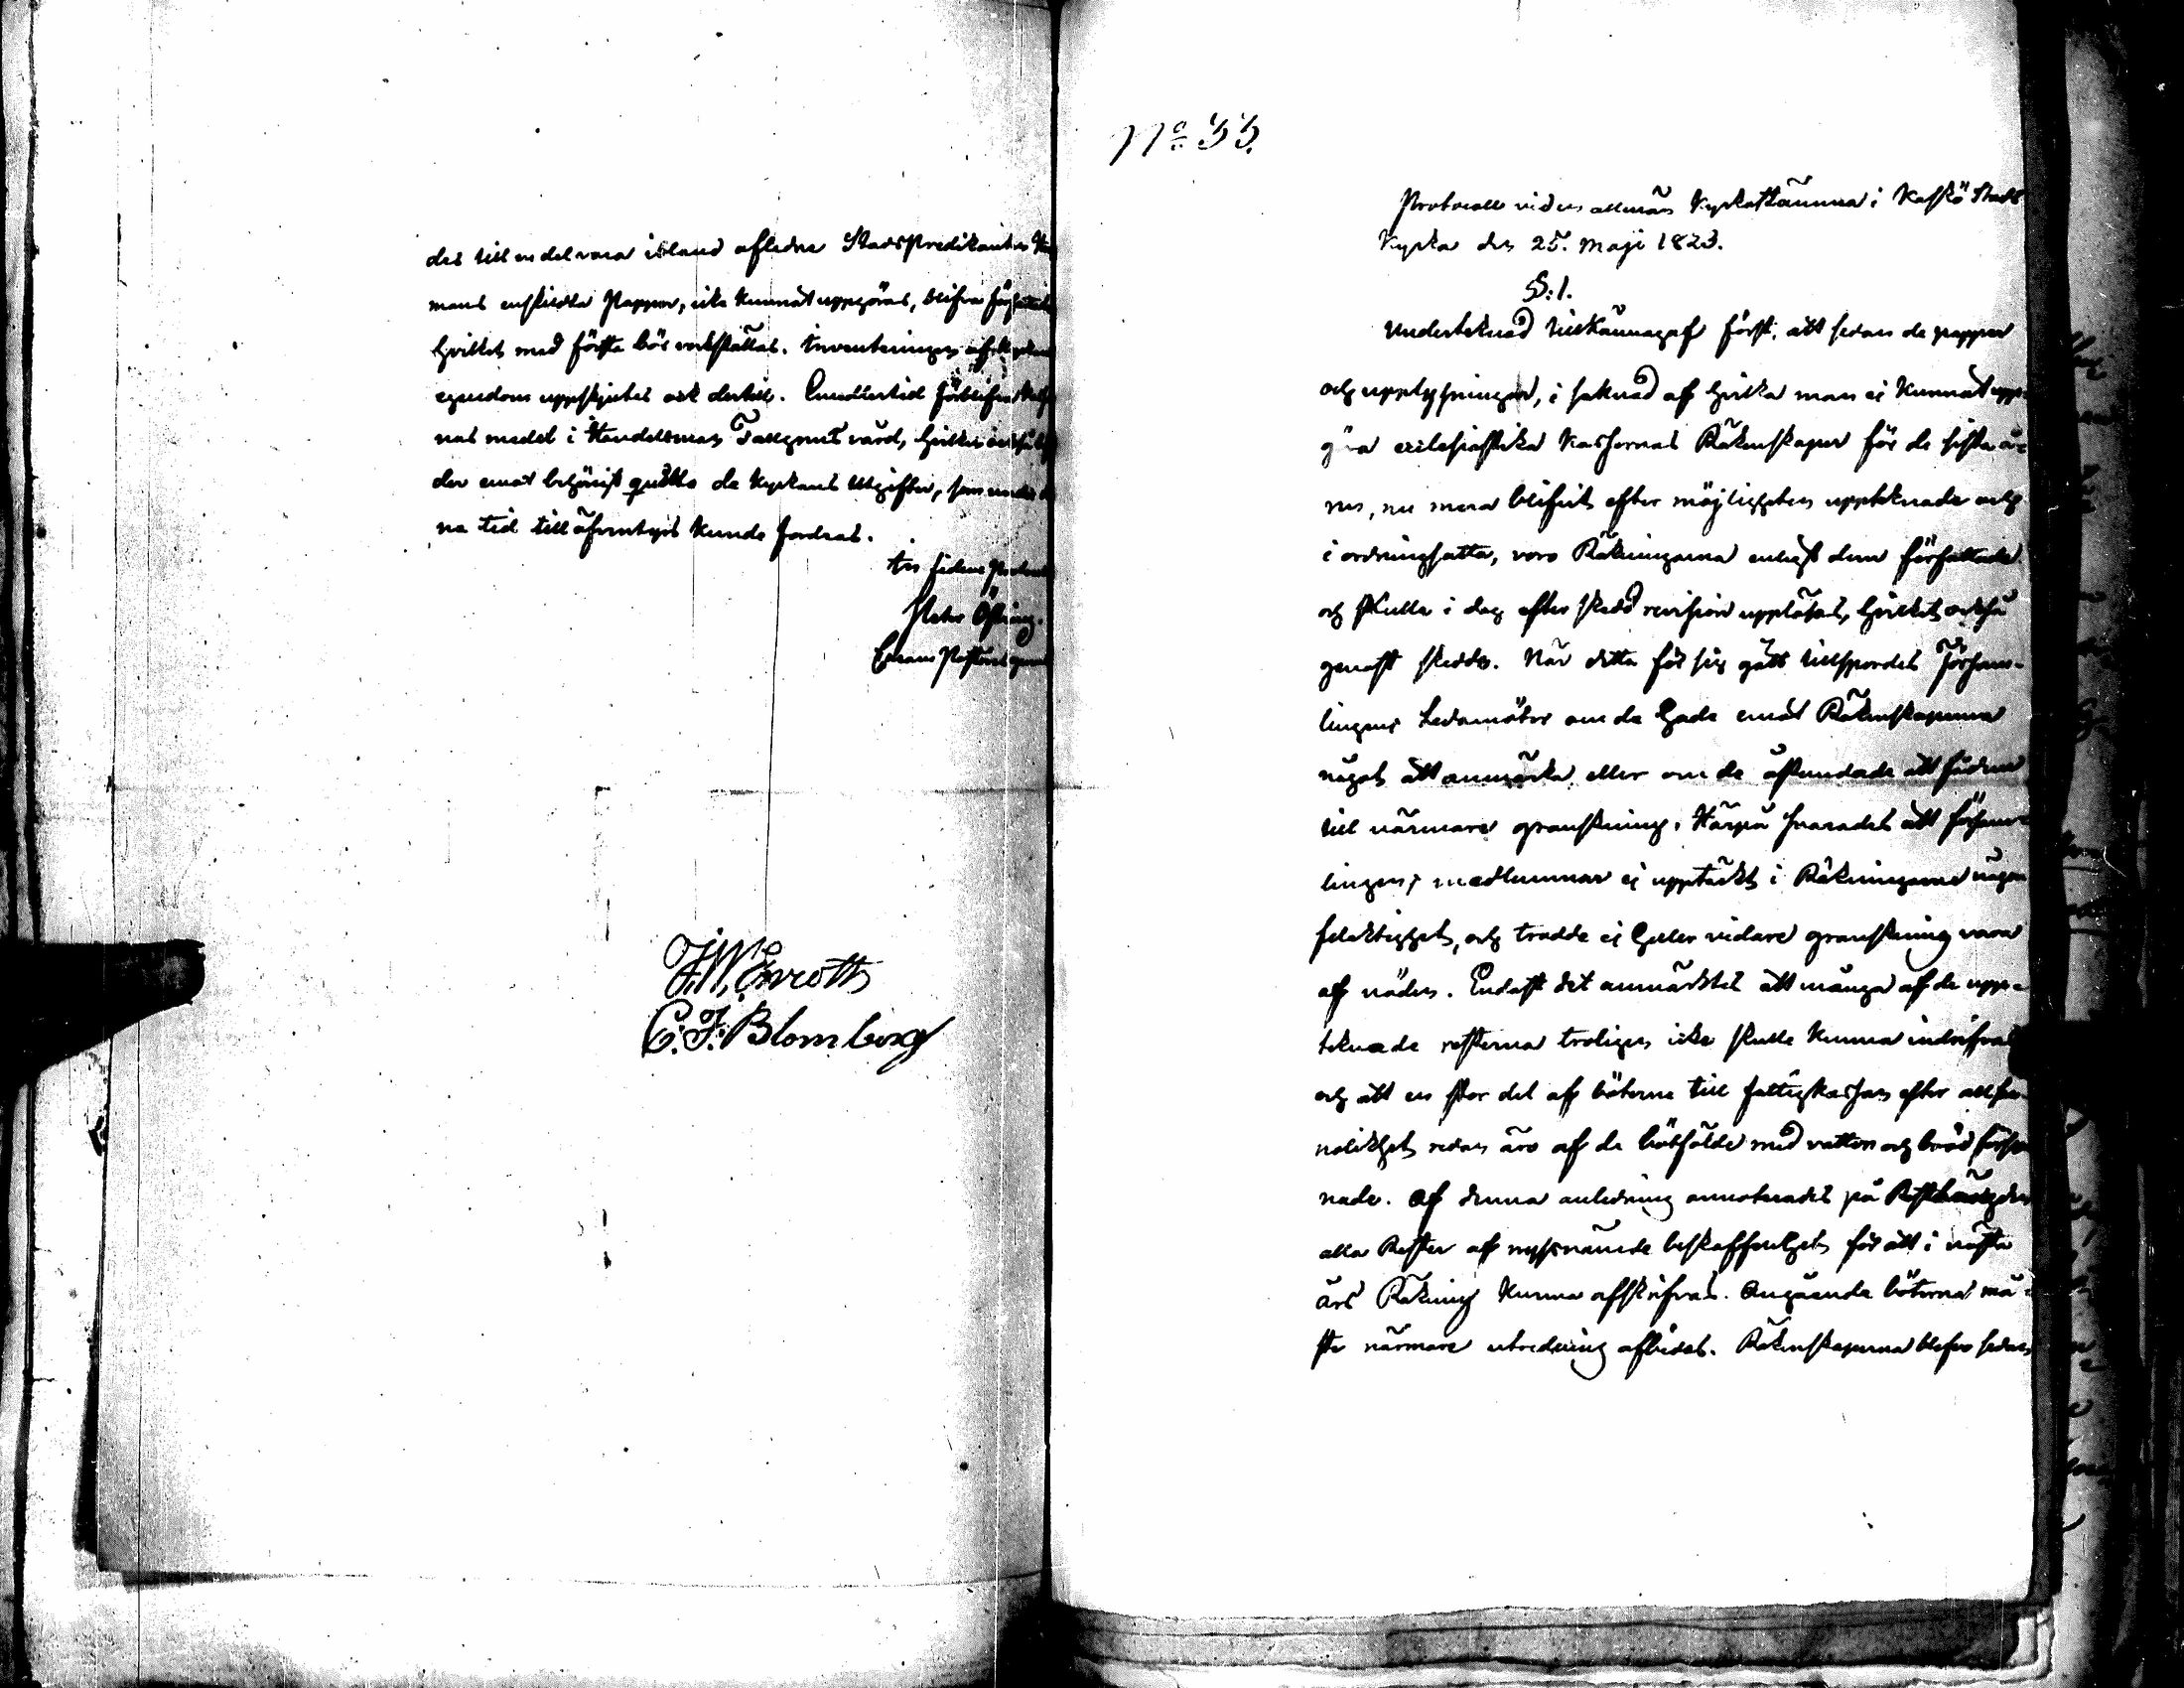 des till en del vara ibland afledne StadsPredikanten
mans enskildta Papper, icke kunnat uppgöras, blifva författade
hvilket med första bör verkställas. Inventeringen af Kyrkans
egendom uppskjutes ock dertill. Emedlertid förblifva
nas medel i Handelsman Tallqvists vård, hvilken
der emot behörigt quitto de Kyrkans Utgifter, som under
na tid till äfventyrs kunde fordras.
In fidem
Peter Östring.
F.W. Enroth
C. J. Blomberg
No 33.
Protocoll vid en allmän Kyrkostämma i Kaskö Stads
Kyrka den 25. Maji 1823.
§: 1.
Undertecknad tillkännagaf först, att sedan de papper
och upplysningar, i saknad af hvilka man ej kunnat upp-
göra ecclesiastika Kassornas Räkenskaper för de sista åre
ren, nu mera blifvit efter möjligheten upptecknade och
i ordning satta, voro Räkningarna enligt dem författade
och skulle i dag efter skedd revision uppläsas, hvilket också
genast skedde. När detta för sig gått tillspordes Försam-
lingens Ledamöter om de hade emot Räkenskaperna
något att anmärka eller om de åstundade att få dem
till närmare granskning. Härpå svarades att försam-
lingens medlemmar ej upptäckt i Räkningarne någon
felaktighet, och trodde ej heller vidare granskning vara
af nöden. Endast det anmärktes att många af de upp-
teknade resterna troligen icke skulle kunna indrifvas
och att en stor del af böterne till fattigkassan efter all san
nolikhet redan äro af de bötfälde med vatten och bröd förso
nade. Af denna anledning annoterades på Restlängden
alla Rester af nyssnämde beskaffenhet för att i nästa
års Räkning kunna afskrifvas. Angående böterna må-
ste närmare utredning afbidas. Räkenskaperna blefvo sedan